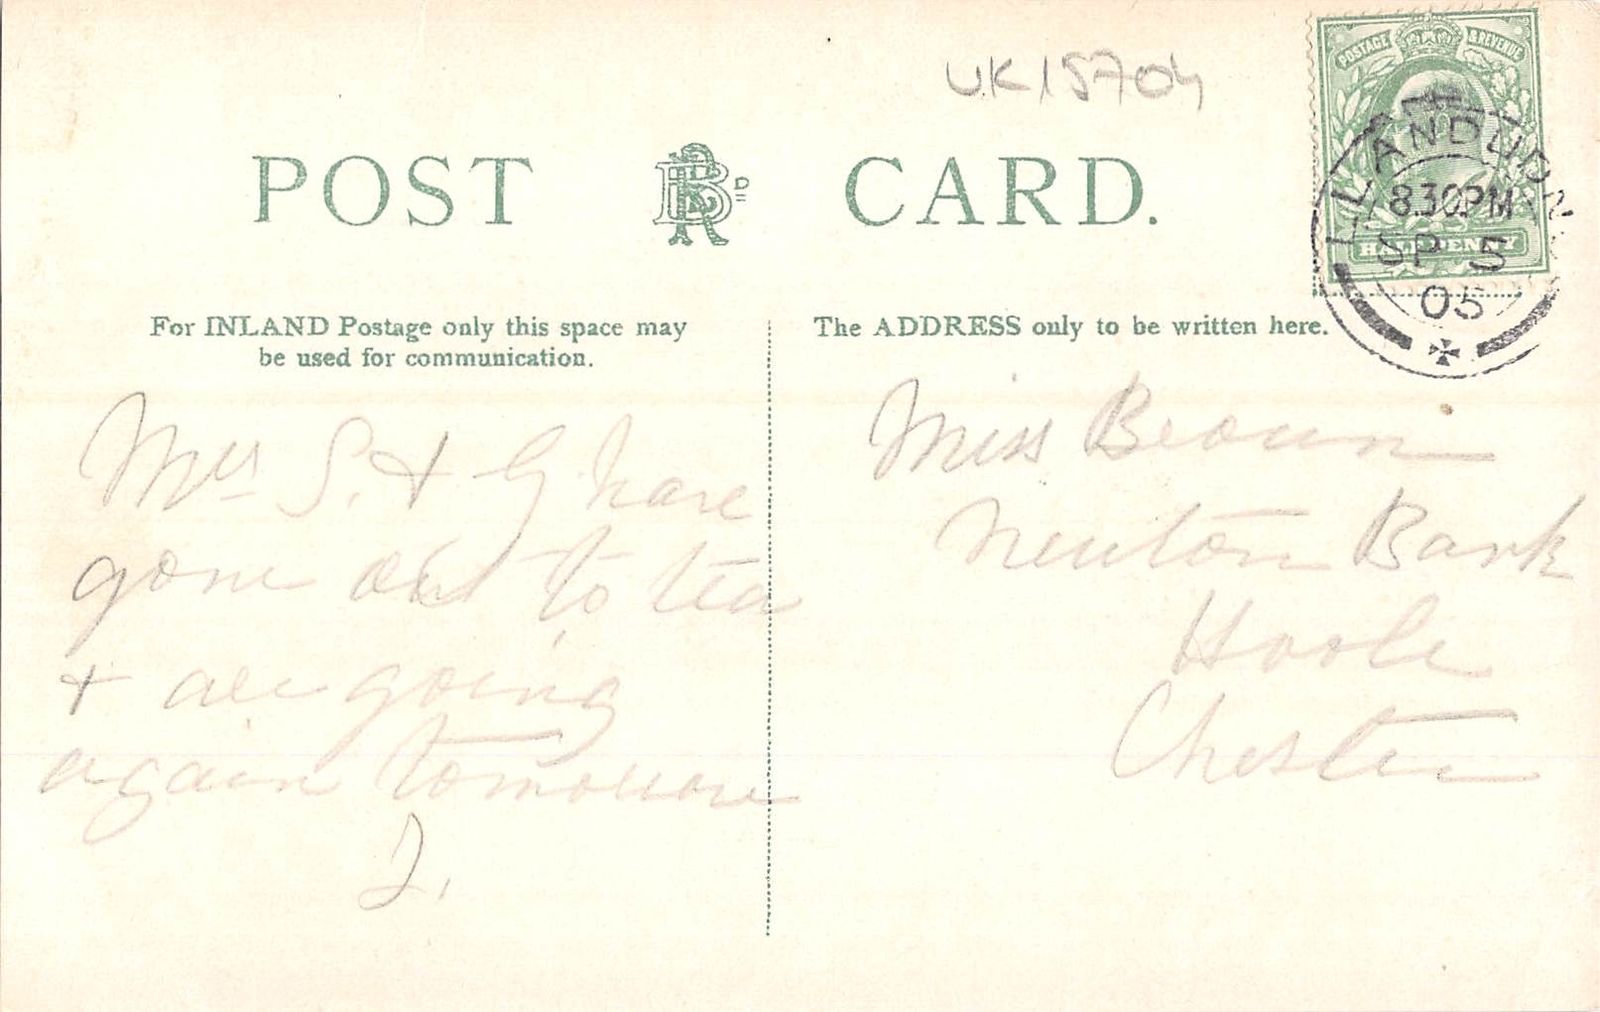 UK15704
POST CARD.
POSTAGE & REVENUE
HALFPENNY
LLANDUDNO
8.30PM
SP 5
05
For INLAND Postage only this space may
be used for communication.
The ADDRESS only to be written here.
Mrs S. & G have
gone out to tea
& are going
again tomorrow
J.
Miss Brown
Newton Bank
Hoole
Chester